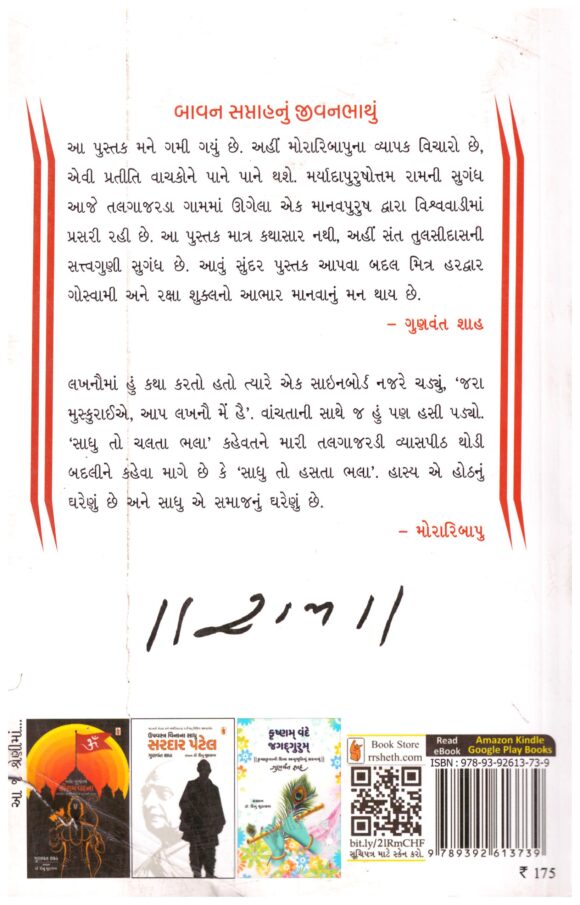 બાવન સપ્તાહનું જીવનભાથું
આ પુસ્તક મને ગમી ગયું છે. અહીં મોરારિબાપુના વ્યાપક વિચારો છે,
એવી પ્રતીતિ વાચકોને પાને પાને થશે. મર્યાદાપુરુષોત્તમ રામની સુગંધ
આજે તલગાજરડા ગામમાં ઊગેલા એક માનવપુરુષ દ્વારા વિશ્વવાડીમાં
પ્રસરી રહી છે. આ પુસ્તક માત્ર કથાસાર નથી, અહીં સંત તુલસીદાસની
સત્ત્વગુણી સુગંધ છે. આવું સુંદર પુસ્તક આપવા બદલ મિત્ર હરદ્વાર
ગોસ્વામી અને રક્ષા શુક્લનો આભાર માનવાનું મન થાય છે.
– ગુણવંત શાહ
લખનૌમાં હું કથા કરતો હતો ત્યારે એક સાઇનબોર્ડ નજરે ચડ્યું, ‘જરા
મુસ્કુરાઈએ, આપ લખનૌ મેં હૈ’. વાંચતાની સાથે જ હું પણ હસી પડ્યો.
‘સાધુ તો ચલતા ભલા’ કહેવતને મારી તલગાજરડી વ્યાસપીઠ થોડી
બદલીને કહેવા માગે છે કે ‘સાધુ તો હસતા ભલા’. હાસ્ય એ હોઠનું
ઘરેણું છે અને સાધુ એ સમાજનું ઘરેણું છે.
– મોરારિબાપુ
||રામ||
આ જ શ્રેણીમાં...
ૐ
ગુણવંત શાહ
ઉપવાસ વિનાના સાધુ
સરદાર પટેલ
ગુણવંત શાહ
કૃષ્ણમ્ વંદે
જગદ્ગુરુમ્
ગુણવંત શાહ
Book Store
rrsheth.com
Read
eBook
Amazon Kindle
Google Play Books
ISBN : 978-93-92613-73-9
bit.ly/2lRmCHF
સૂચિપત્ર માટે સ્કેન કરો.
9 789392 613739
₹ 175